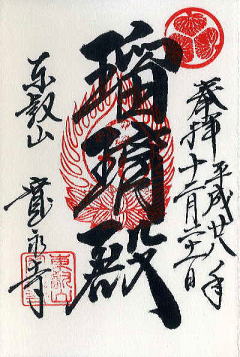 奉拝 平成廿八年
十二月二十一日
瑠璃殿
東叡山
寛永寺